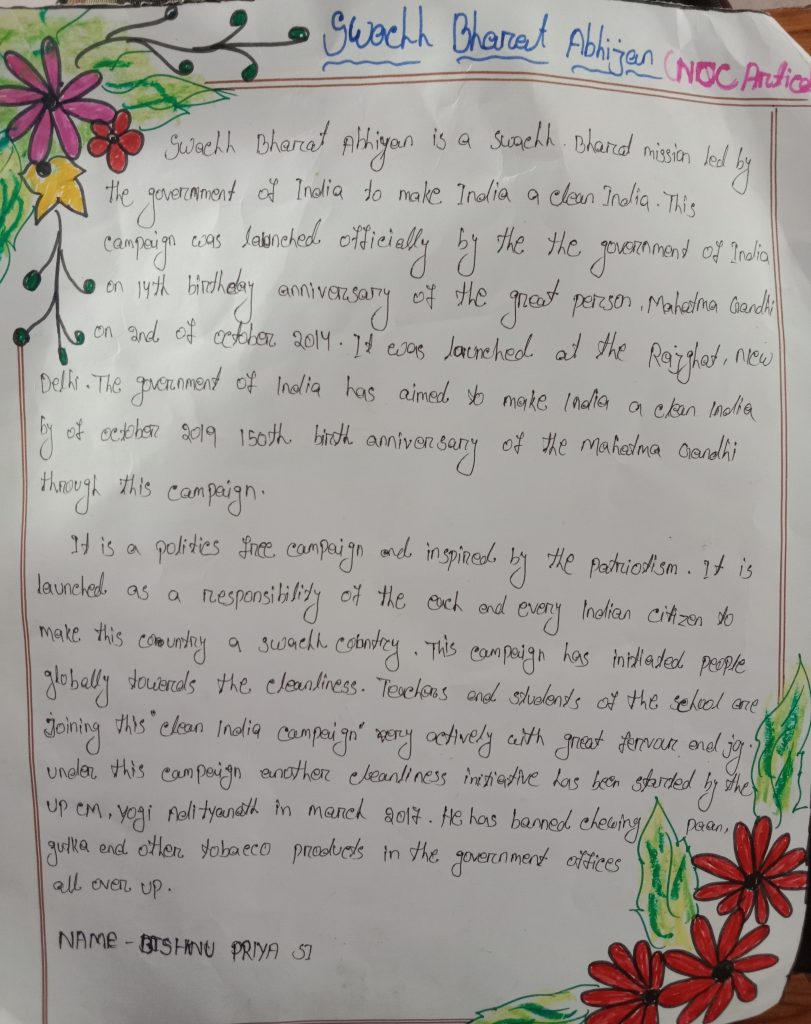 Swachh Bharat Abhijan (NOC Artice
Swachh Bharat Abhiyan is a swachh. Bharat mission led by
the government of India to make India a clean India. This
campaign was launched officially by the the government of India
on 14th birthday anniversary of the great person, Mahatma Gandhi
on 2nd of october 2014. It was launched at the Rajghat, new
Delhi. The government of India has aimed to make India a clean India
by of october 2019 150th birth anniversary of the Mahatma Gandhi
through this campaign.
It is a politics free campaign and inspired by the patriotism. It is
launched as a responsibility of the each and every Indian citizen to
make this country a swachh country. This campaign has initiated people
globally towards the cleanliness. Teachers and students of the school are
joining this "clean India campaign" very actively with great fervour and joy.
under this campaign another cleanliness initiative has been started by the
UP CM, Yogi Adityanath in march 2017. He has banned chewing paan,
gutka and other tobacco products in the government offices
all over up.
NAME - BISHNU PRIYA